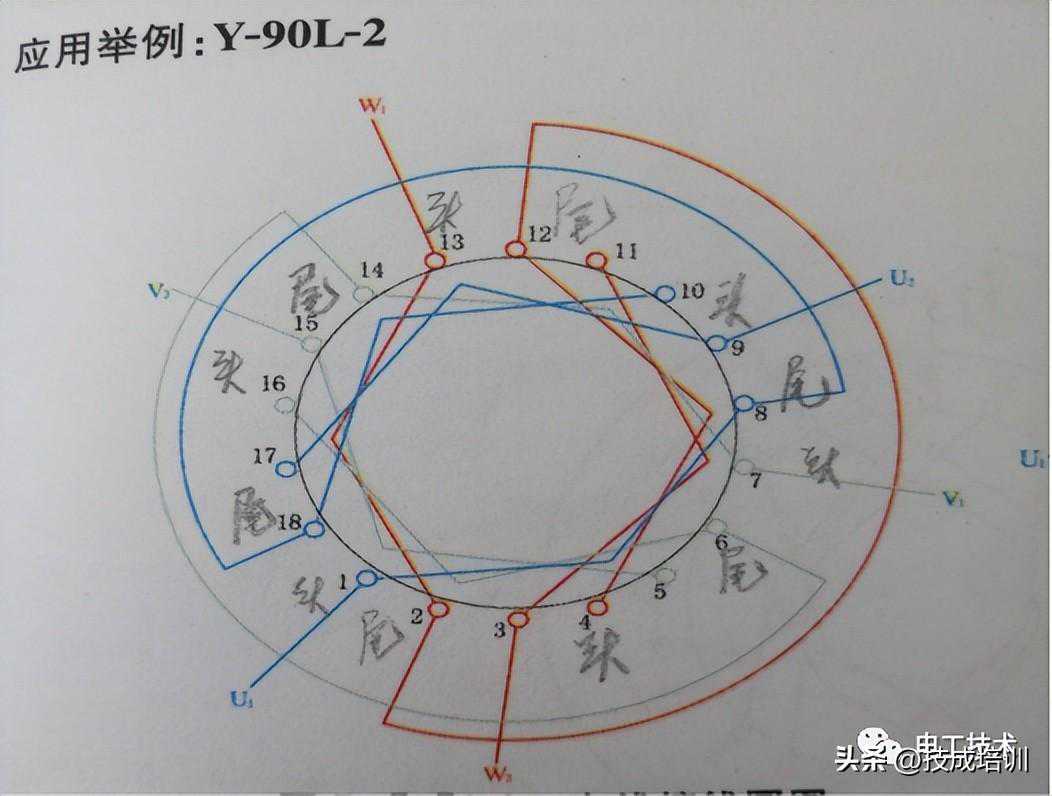 应用举例:Y-90L-2
W₁
头
尾
13
12
11
14
尾
10
头
U₂
V₂
15
9
头
16
尾
8
17
头
7
U₁
V₁
尾
18
6
尾
头
1
5
尾
2
3
4
头
U₁
W₂
电工技术
头条 @技成培训